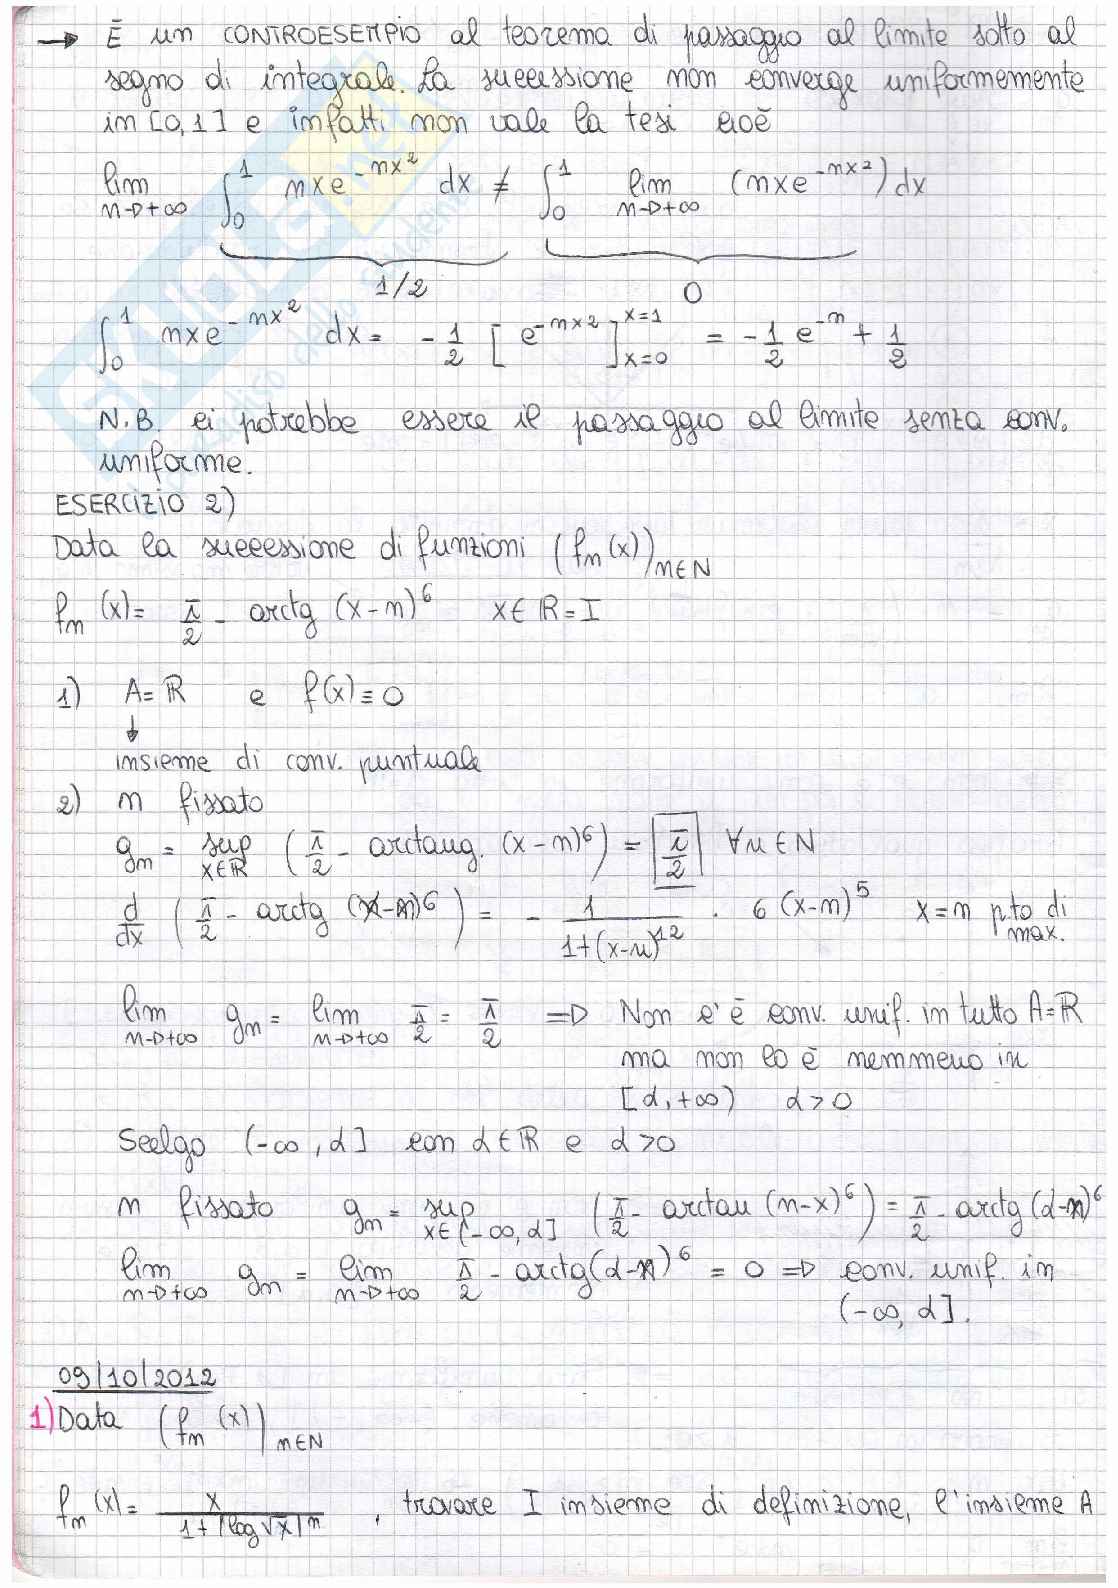 → È un CONTROESEMPIO al teorema di passaggio al limite sotto al
segno di integrale. La successione non converge uniformemente
in [0,1] e infatti non vale la tesi cioè
lim n→+∞ ∫₀¹ nxe^{-nx²} dx ≠ ∫₀¹ lim n→+∞ (nxe^{-nx²}) dx
1/2 0
∫₀¹ nxe^{-nx²} dx = -1/2 [e^{-nx²}]_{x=0}^{x=1} = -1/2 e^{-n} + 1/2
N.B. ci potrebbe essere il passaggio al limite senza conv.
uniforme.
ESERCIZIO 2)
Data la successione di funzioni (fn(x))n∈N
fn(x) = π/2 - arctg (x-n)⁶ x∈ℝ=I
1) A=ℝ e f(x)≡0
↓
insieme di conv. puntuale
2) n fissato
gn = sup x∈ℝ (π/2 - arctang. (x-n)⁶) = π/2 ∀n∈N
d/dx (π/2 - arctg (x-n)⁶) = - 1/(1+(x-n)¹²) · 6(x-n)⁵ x=n p.to di max.
lim n→+∞ gn = lim n→+∞ π/2 = π/2 ⇒ Non c'è conv. unif. in tutto A=ℝ
ma non lo è nemmeno in
[α,+∞) α>0
Scelgo (-∞,α] con α∈ℝ e α>0
n fissato gn = sup x∈(-∞,α] (π/2 - arctan (n-x)⁶) = π/2 - arctg (α-n)⁶
lim n→+∞ gn = lim n→+∞ π/2 - arctg(α-n)⁶ = 0 ⇒ conv. unif. in
(-∞,α].
09/10/2012
1) Data (fn(x))n∈N
fn(x) = x/(1+|log√x|ⁿ) , trovare I insieme di definizione, l'insieme A